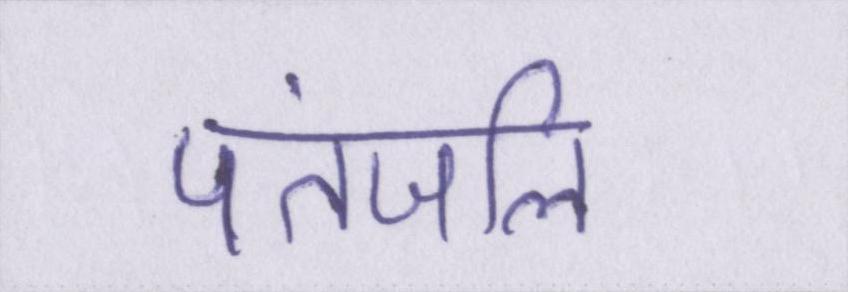 पंतजलि